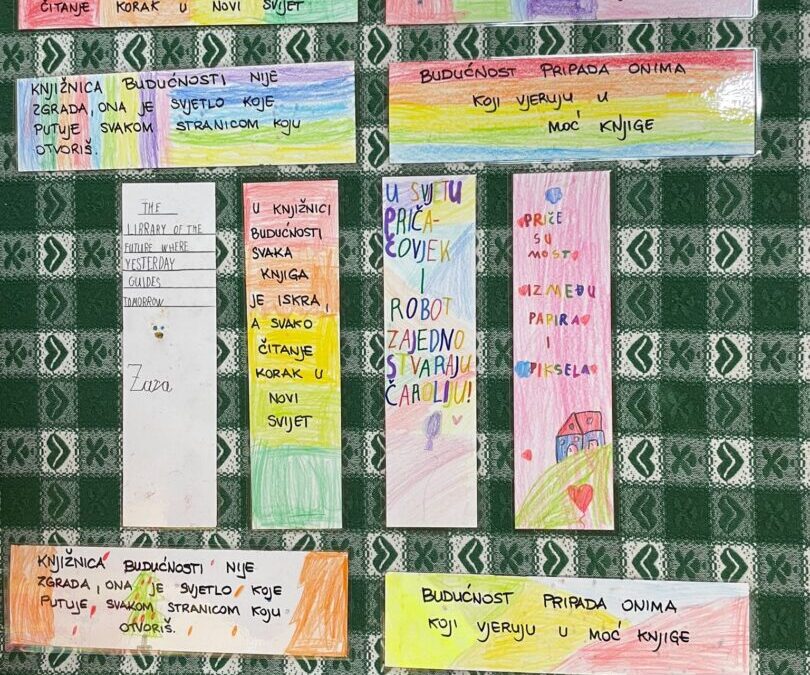 ČITANJE KORAK U NOVI SVIJET
KNJIŽNICA BUDUĆNOSTI NIJE
ZGRADA, ONA JE SVJETLO KOJE
PUTUJE SVAKOM STRANICOM KOJU
OTVORIŠ.
BUDUĆNOST PRIPADA ONIMA
KOJI VJERUJU U
MOĆ KNJIGE
THE
LIBRARY OF THE
FUTURE WHERE
YESTERDAY
GUIDES
TOMORROW
Zara
U KNJIŽNICI
BUDUĆNOSTI
SVAKA
KNJIGA
JE ISKRA,
A SVAKO
ČITANJE
KORAK U
NOVI
SVIJET
U SVJETU
PRIČA-
ČOVJEK
I
ROBOT
ZAJEDNO
STVARAJU
ČAROLIJU!
PRIČE
SU
MOST
IZMEĐU
PAPIRA
I
PIKSELA
KNJIŽNICA BUDUĆNOSTI NIJE
ZGRADA, ONA JE SVJETLO KOJE
PUTUJE SVAKOM STRANICOM KOJU
OTVORIŠ.
BUDUĆNOST PRIPADA ONIMA
KOJI VJERUJU U MOĆ KNJIGE